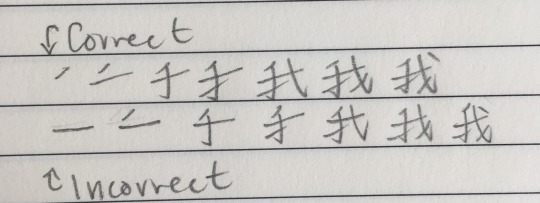 ↓Correct
㇒ 二 于 手 我 我 我
一 二 于 手 我 我 我
↑Incorrect